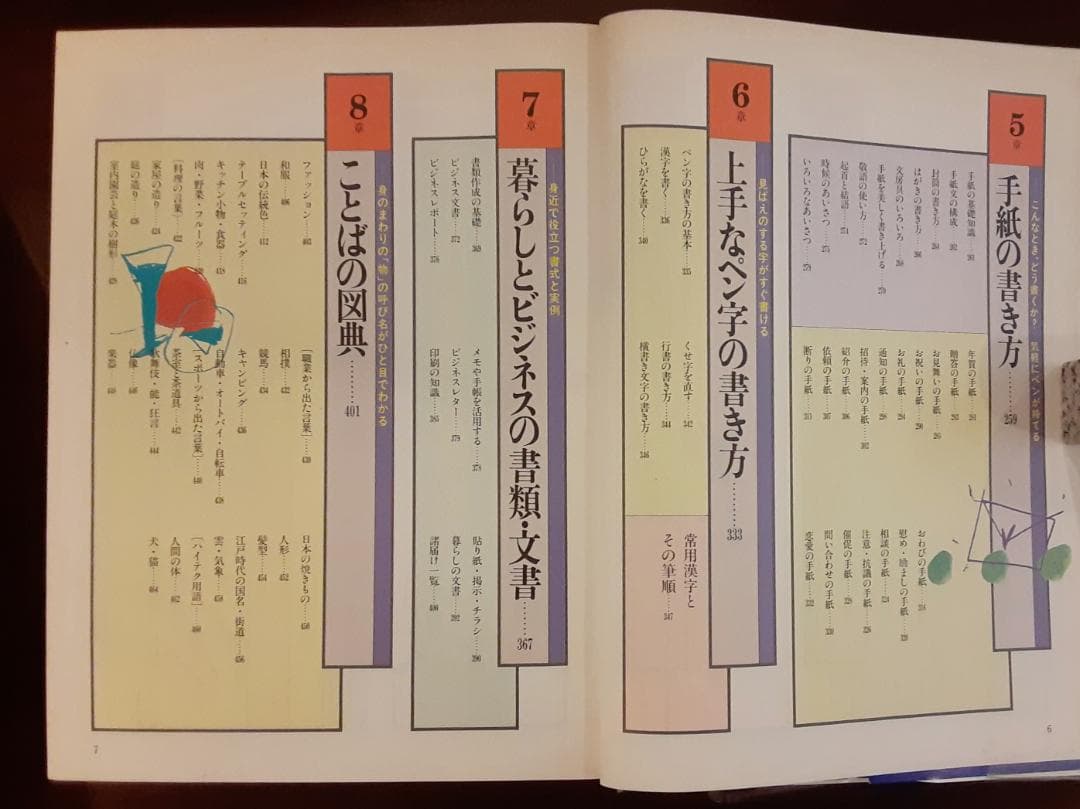 5章
こんなとき、どう書くか? 気軽にペンが持てる
手紙の書き方………259
手紙の基礎知識……261
手紙文の構成……262
封筒の書き方……264
はがきの書き方……266
文房具のいろいろ……268
手紙を美しく書き上げる……270
敬語の使い方……272
起首と結語……274
時候のあいさつ……275
いろいろなあいさつ……279
年賀の手紙……281
贈答の手紙……283
お見舞いの手紙……286
お祝いの手紙……290
お礼の手紙……294
通知の手紙……298
招待・案内の手紙……302
紹介の手紙……306
依頼の手紙……307
断りの手紙……311
おわびの手紙……316
慰め・励ましの手紙……320
相談の手紙……324
注意・抗議の手紙……326
催促の手紙……328
問い合わせの手紙……330
恋愛の手紙……332
6章
見ばえのする字がすぐ書ける
上手なペン字の書き方………333
ペン字の書き方の基本……335
漢字を書く……336
ひらがなを書く……340
くせ字を直す……342
行書の書き方……344
横書き文字の書き方……346
常用漢字と
その筆順……347
6
7章
身近で役立つ書式と実例
暮らしとビジネスの書類・文書………367
書類作成の基礎……369
ビジネス文書……372
ビジネスレポート……376
メモや手帳を活用する……378
ビジネスレター……379
印刷の知識……385
貼り紙・掲示・チラシ……390
暮らしの文書……392
諸届け一覧……400
8章
身のまわりの「物」の呼び名がひと目でわかる
ことばの図典………401
ファッション……403
和服……406
日本の伝統色……412
テーブルセッティング……416
キッチン小物・食器……418
肉・野菜・フルーツ……
[料理の言葉]……422
家屋の造り……424
庭の造り……426
室内園芸と庭木の樹形……428
[職業から出た言葉]……430
相撲……432
競馬……434
キャンピング……436
自動車・オートバイ・自転車……438
[スポーツから出た言葉]……440
茶室と茶道具……442
歌舞伎・能・狂言……444
仏像……446
楽器……448
日本の焼きもの……450
人形……452
髪型……454
江戸時代の国名・街道……456
雲・気象……458
[ハイテク用語]……460
人間の体……462
犬・猫……464
7